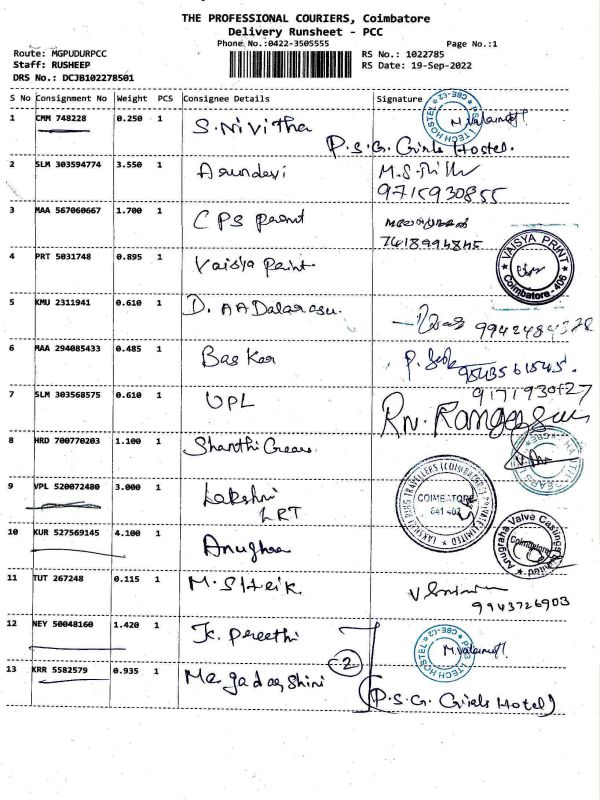 THE PROFESSIONAL COURIERS, Coimbatore
Delivery Runsheet - PCC
Phone No.:0422-3505555
Page No.:1
Route: MGPUDURPCC
RS No.: 1022785
Staff: RUSHEEP
RS Date: 19-Sep-2022
DRS No.: DCJB102278501
S No Consignment No Weight PCS Consignee Details Signature
1 CMM 748228 0.250 1 S.Nivitha
P.S.G. Girls Hostel.
2 SLM 303594774 3.550 1 Arundevi
9715930855
3 MAA 567060667 1.700 1 CPS Paint
7418994845
4 PRT 5031748 0.895 1 Vaisya Paint
VAISYA PRINT
Coimbatore - 406
5 KMU 2311941 0.610 1 D.
6 MAA 294085433 0.485 1 Baskar
7 SLM 303568575 0.610 1 UPL
8 HRD 700770203 1.100 1 Shanthi Gears
9 VPL 520072480 3.000 1 Lakshmi
LRT
COIMBATORE
641 402
10 KUR 527569145 4.100 1 Anughaa
Anugraha Valve Castings Limited
Coimbatore
11 TUT 267248 0.115 1 M. Sheik
9943726903
12 NEY 50048160 1.420 1 K. Preethi
13 KRR 5582579 0.935 1
2
(P.S.G. Girls Hotel)